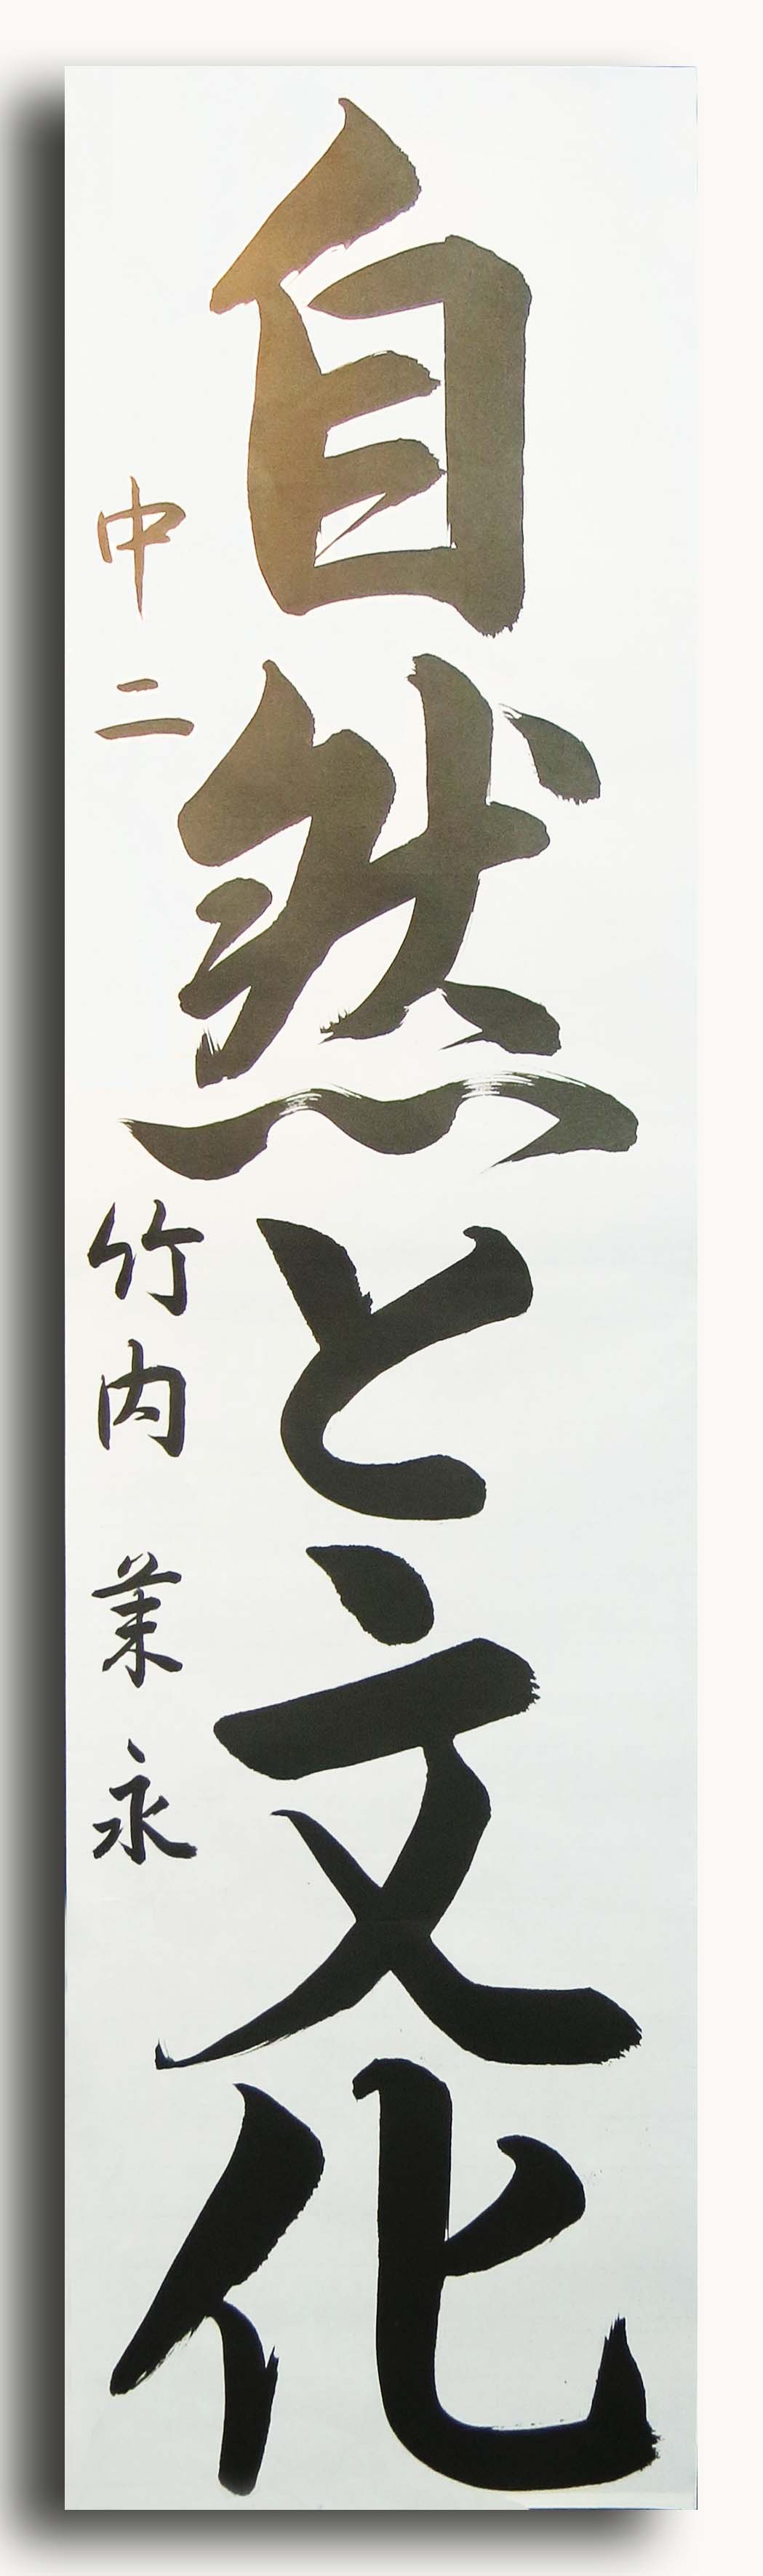 自然と文化
中二 竹内 茉永